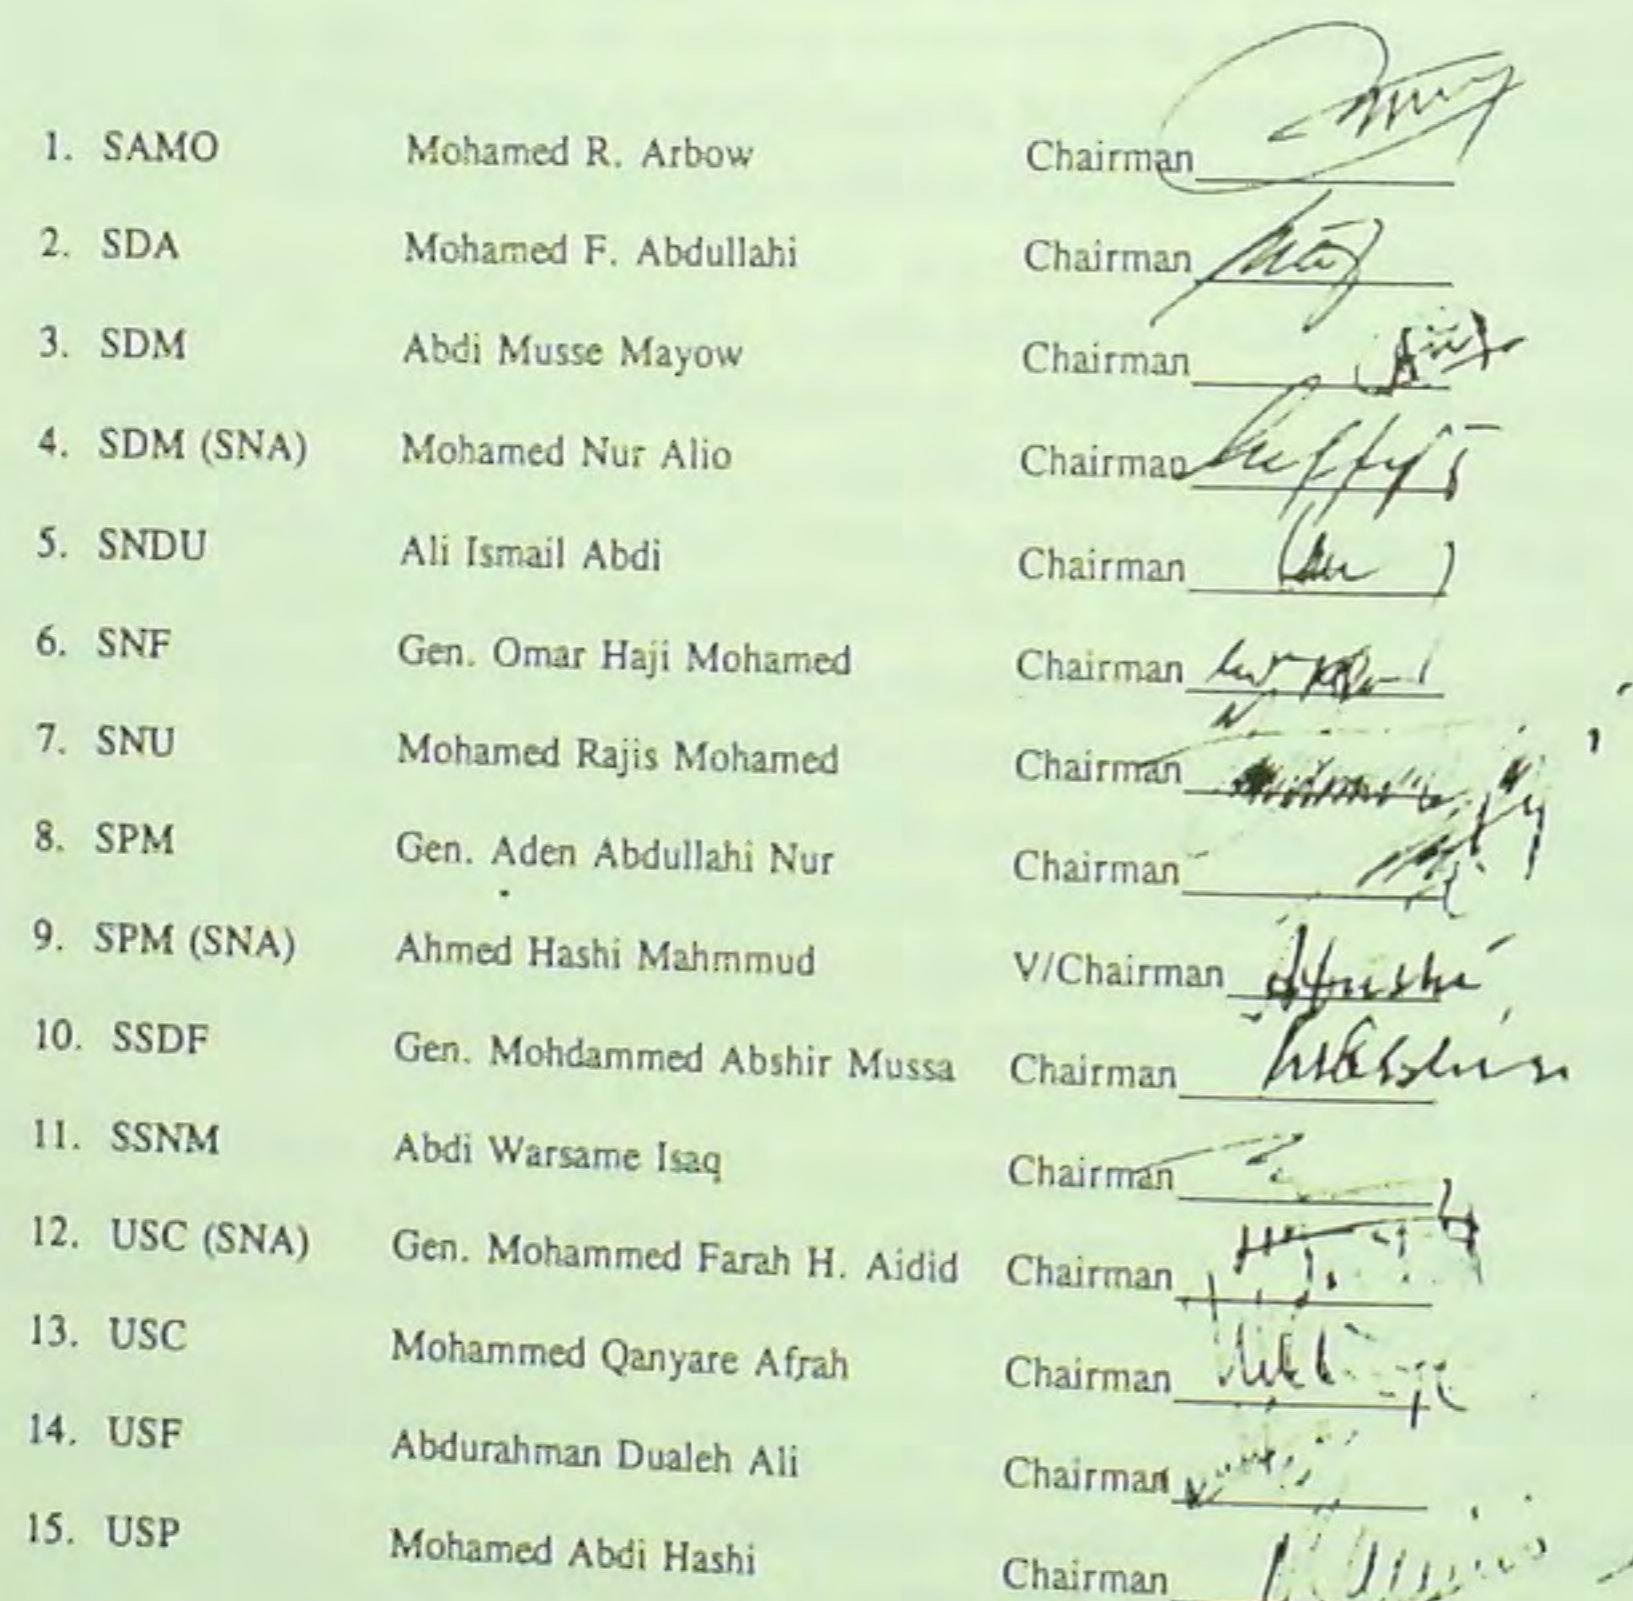 1. SAMO Mohamed R. Arbow Chairman
2. SDA Mohamed F. Abdullahi Chairman
3. SDM Abdi Musse Mayow Chairman
4. SDM (SNA) Mohamed Nur Alio Chairman
5. SNDU Ali Ismail Abdi Chairman
6. SNF Gen. Omar Haji Mohamed Chairman
7. SNU Mohamed Rajis Mohamed Chairman
8. SPM Gen. Aden Abdullahi Nur Chairman
9. SPM (SNA) Ahmed Hashi Mahmmud V/Chairman
10. SSDF Gen. Mohdammed Abshir Mussa Chairman
11. SSNM Abdi Warsame Isaq Chairman
12. USC (SNA) Gen. Mohammed Farah H. Aidid Chairman
13. USC Mohammed Qanyare Afrah Chairman
14. USF Abdurahman Dualeh Ali Chairman
15. USP Mohamed Abdi Hashi Chairman